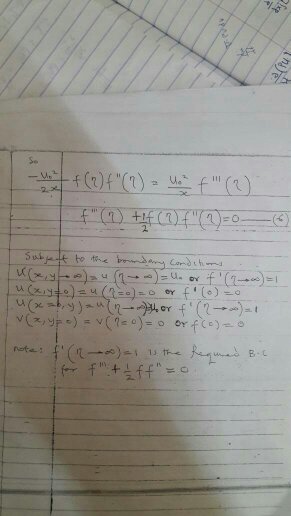 So
-U₀²/2x f(η) f''(η) = U₀²/x f'''(η)
f'''(η) + 1/2 f(η) f''(η) = 0 —(6)
Subject to the boundary conditions
U(x, y→∞) = u(η→∞) = U₀ or f'(η→∞) = 1
U(x, y=0) = u(η=0) = 0 or f'(0) = 0
U(x=0, y) = u(η→∞) U₀ or f'(η→∞) = 1
V(x, y=0) = V(η=0) = 0 or f(0) = 0
note: f'(η→∞) = 1 is the Required B.C
for f''' + 1/2 f f'' = 0